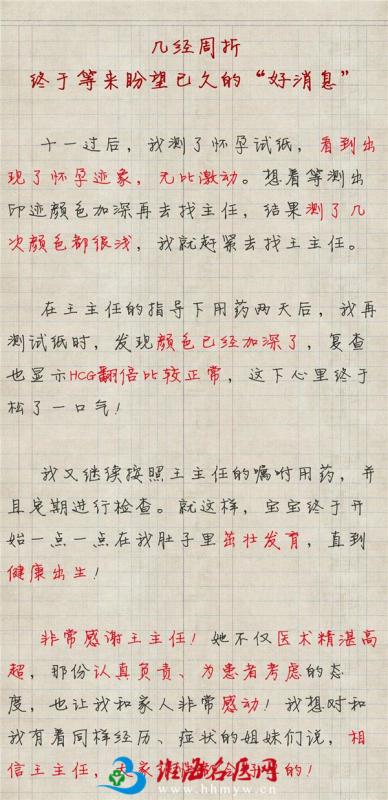 几经周折
终于等来盼望已久的“好消息”
十一过后，我测了怀孕试纸，看到出
现了怀孕迹象，无比激动。想着等测出
印迹颜色加深再去找主任，结果测了几
次颜色都很浅，我就赶紧去找王主任。
在王主任的指导下用药两天后，我再
测试纸时，发现颜色已经加深了，复查
也显示HCG翻倍比较正常，这下心里终于
松了一口气！
我又继续按照王主任的嘱咐用药，并
且定期进行检查。就这样，宝宝终于开
始一点一点在我肚子里茁壮发育，直到
健康出生！
非常感谢王主任！她不仅医术精湛高
超，那份认真负责、为患者考虑的态
度，也让我和家人非常感动！我想对和
我有着同样经历、症状的姐妹们说，相
信王主任，大家的！
淮海名医网
www.hhmyw.cn